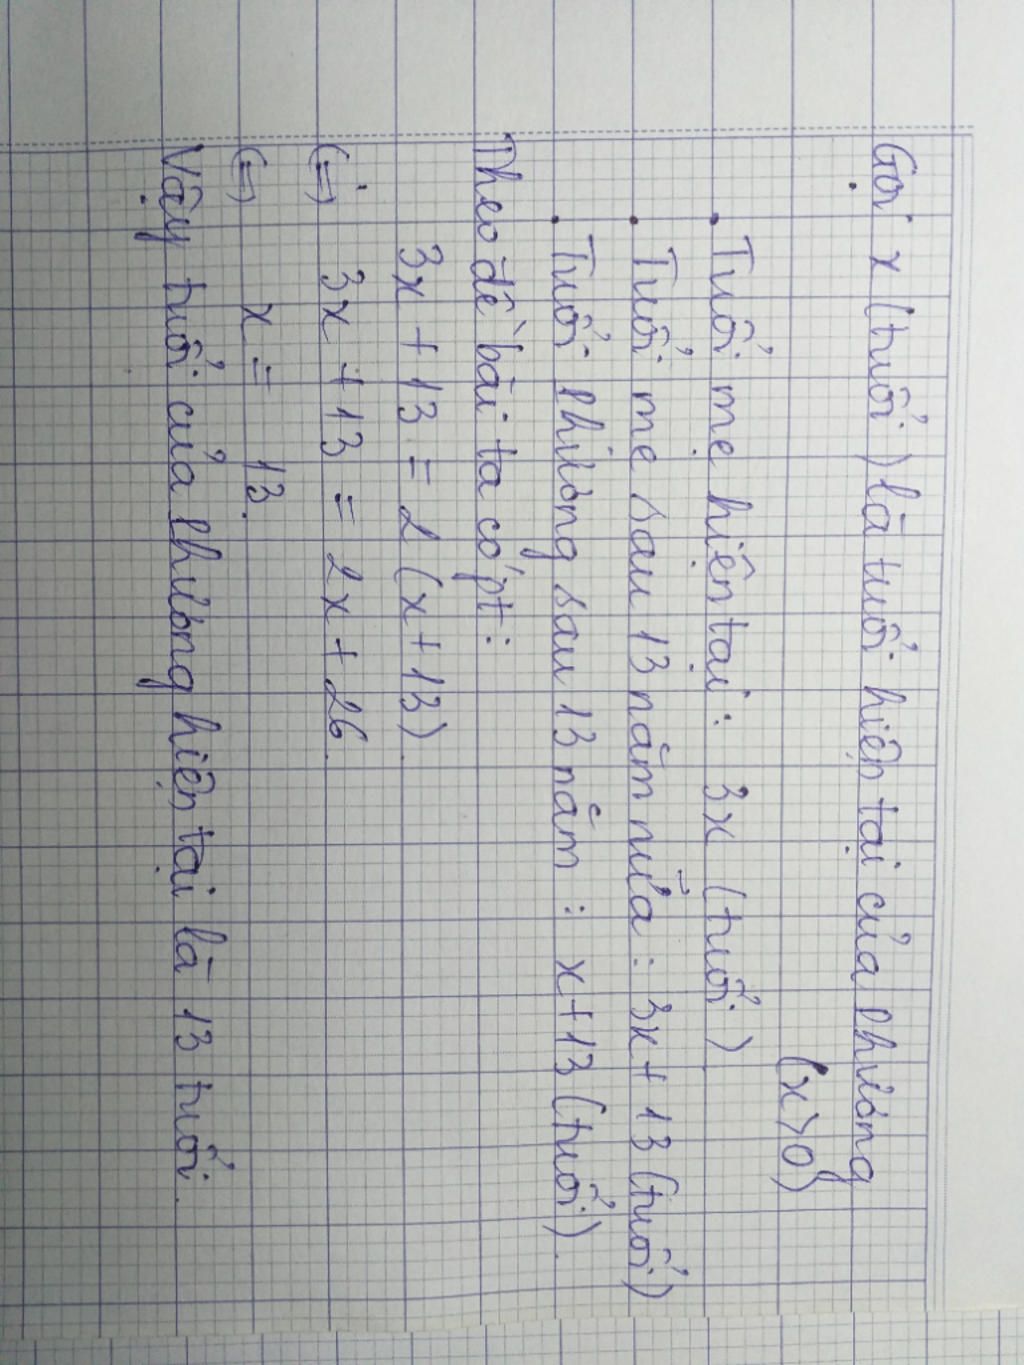 Gọi x (tuổi) là tuổi hiện tại của Phương
(x>0)
• Tuổi mẹ hiện tại : 3x (tuổi)
• Tuổi mẹ sau 13 năm nữa : 3x + 13 (tuổi)
• Tuổi Phương sau 13 năm : x+13 (tuổi).
Theo đề bài ta có pt :
3x + 13 = 2 (x+13)
(=) 3x + 13 = 2x + 26.
(=) x = 13.
Vậy tuổi của Phương hiện tại là 13 tuổi.